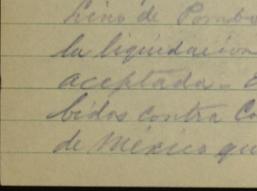 Lino de Pombo
la liquidación
aceptada.
bidos contra Co
de México qu